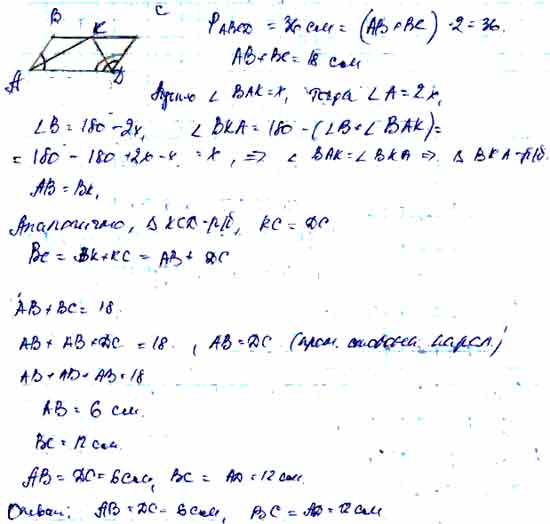 B K C
A D
P ABCD = 36 см = (AB + BC) · 2 = 36.
AB + BC = 18 см
Пусть ∠ BAK = x, тогда ∠ A = 2x,
∠B = 180 - 2x, ∠ BKA = 180 - (∠B + ∠ BAK) =
= 180 - 180 + 2x - x = x, => ∠ BAK = ∠ BKA => Δ BKA - р/б.
AB = BK,
Аналогично, Δ KCD - р/б, KC = DC
BC = BK + KC = AB + DC
AB + BC = 18.
AB + AB + DC = 18, AB = DC (прот. стороны парал.)
AB + AB + AB = 18
AB = 6 см.
BC = 12 см.
AB = DC = 6 см, BC = AD = 12 см.
Ответ: AB = DC = 6 см, BC = AD = 12 см